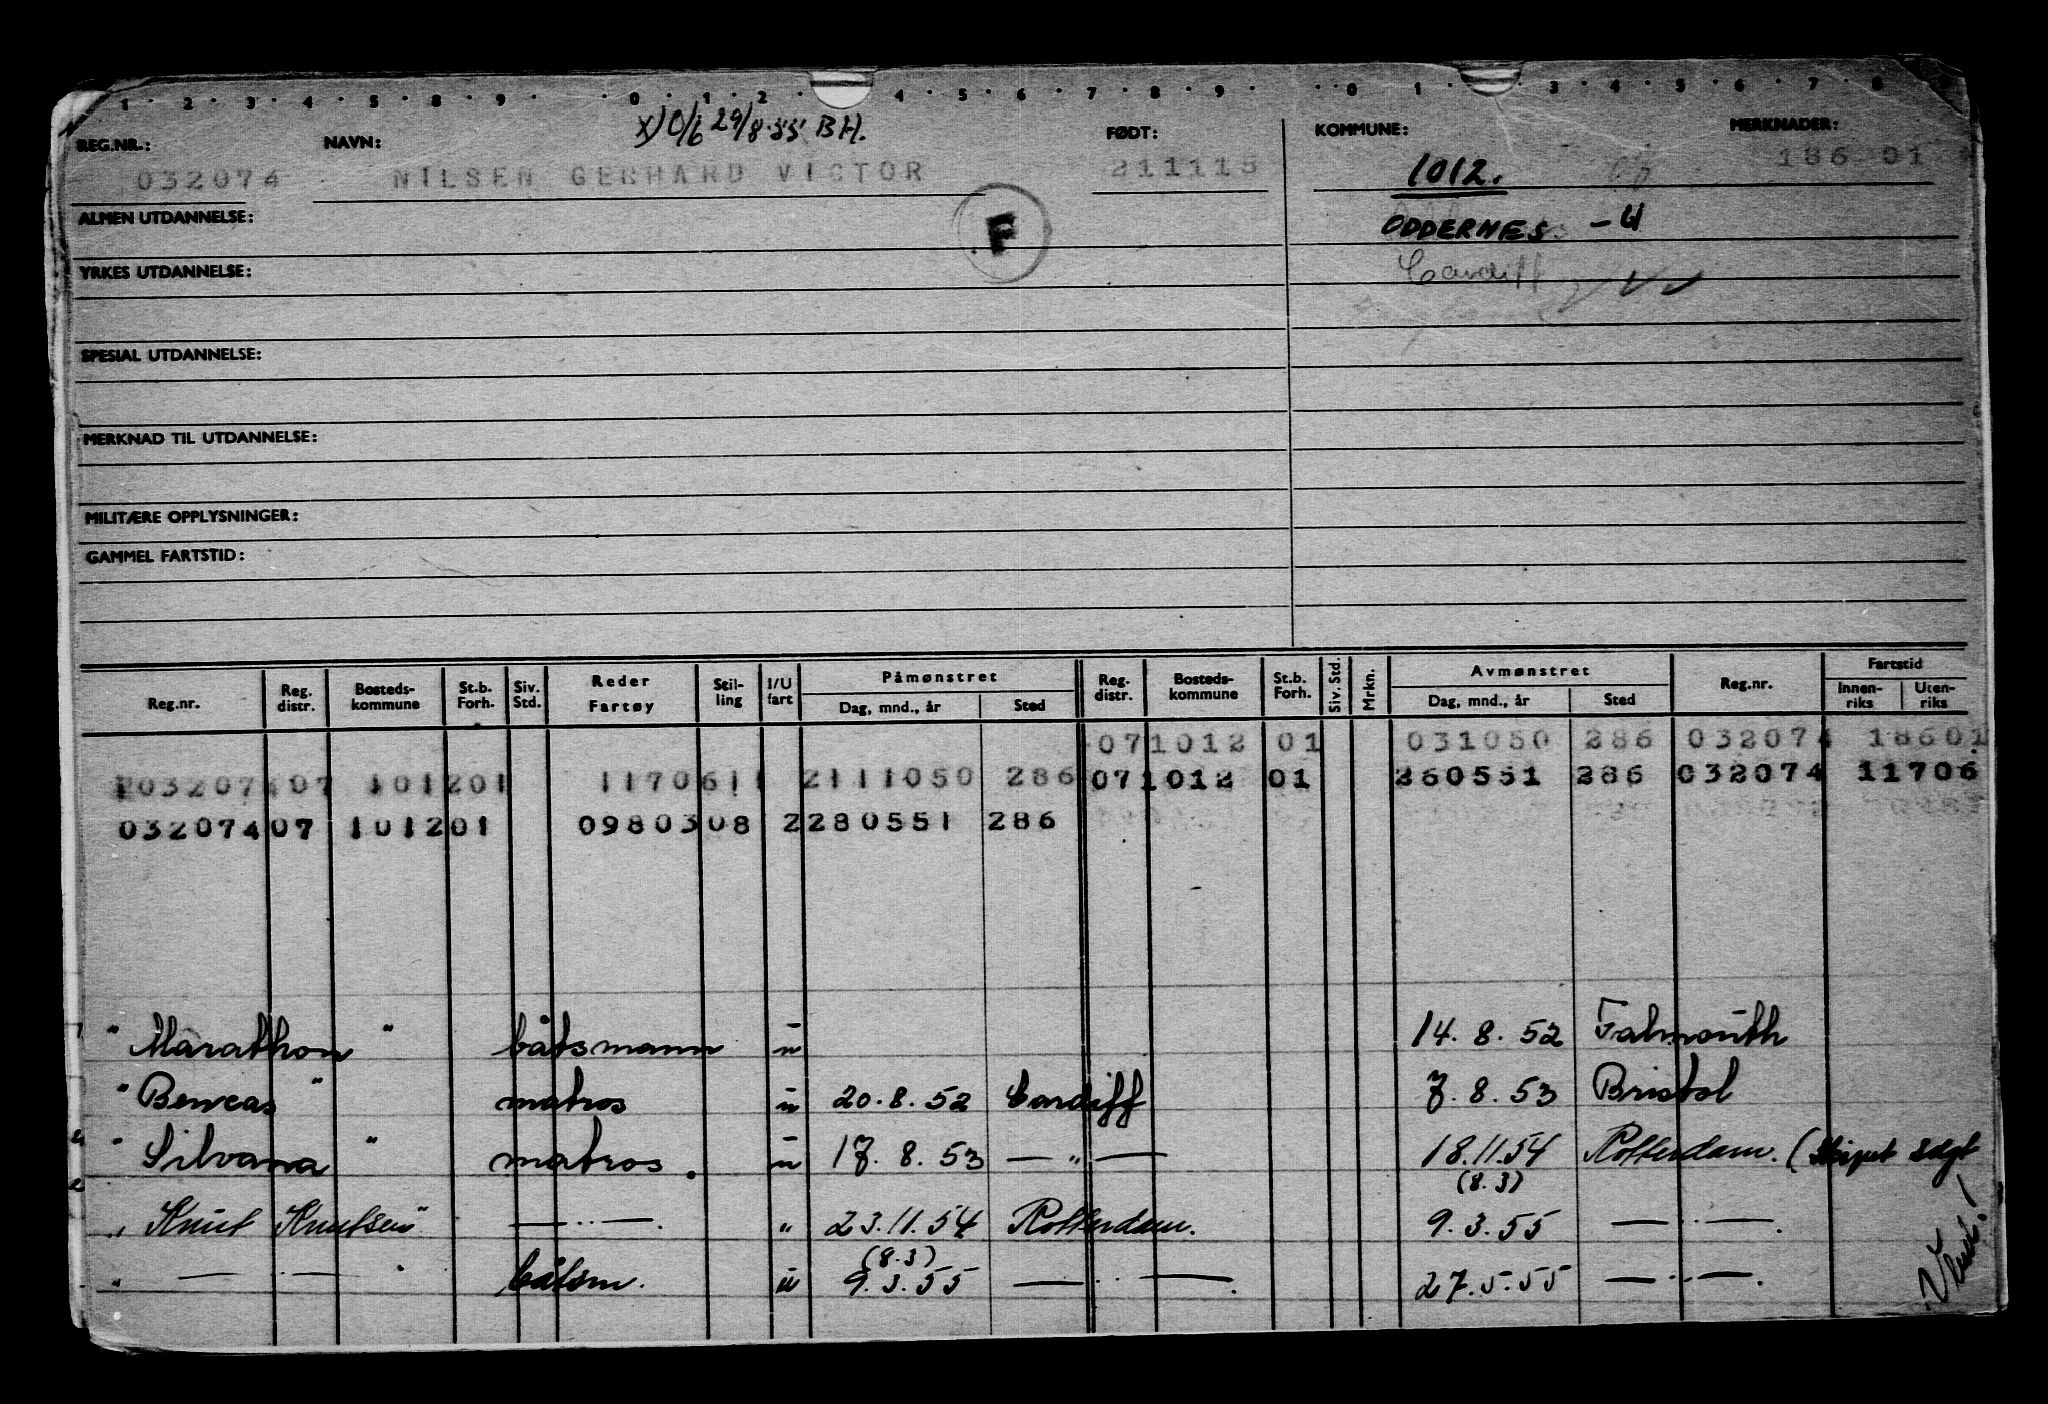 1 · 2 · 3 · 4 · 5 · 8 · 9 · 0 · 1 · 2 · 4 · 5 · 6 · 7 · 8 · 9 · 0 1 · 3 · 4 · 5 · 6 · 7 · 8
x) O/b 29/8-55 B H.
REG.NR.: NAVN: FØDT: KOMMUNE: MERKNADER:
032074 NILSEN GERHARD VICTOR 211115 1012. 186 01
ALMEN UTDANNELSE: F ODDERNES - U
YRKES UTDANNELSE: Cardiff
SPESIAL UTDANNELSE:
MERKNAD TIL UTDANNELSE:
MILITÆRE OPPLYSNINGER:
GAMMEL FARTSTID:
Reg.nr. Reg. distr. Bosteds-kommune St.b. Forh. Siv. Std. Reder Fartøy Stil-ling I/U fart Påmønstret Dag, mnd., år Sted Reg. distr. Bosteds-kommune St.b. Forh. Siv. Std. Mrkn. Avmønstret Dag, mnd., år Sted Reg.nr. Fartstid Innen-riks Uten-riks
071012 01 031050 286 032074 18601
03207407 101201 1170611 2111050 286 071012 01 260551 286 032074 11706
03207407 101201 0980308 2280551 286
" Marathon " båtsmann u 14. 8. 52 Falmouth
" Bencas " matros u 20. 8. 52 Cardiff 7. 8. 53 Bristol
" Silvana " matros. u 17. 8. 53 — " — 18.11.54 Rotterdam. (Skipet solgt
(8.3)
" Knut Knutsen " — " —. " 23.11.54 Rotterdam. 9. 3. 55 — " —.
(8.3)
" — " — båtsm. u 9. 3. 55 — " —. 27. 5. 55 — " —.